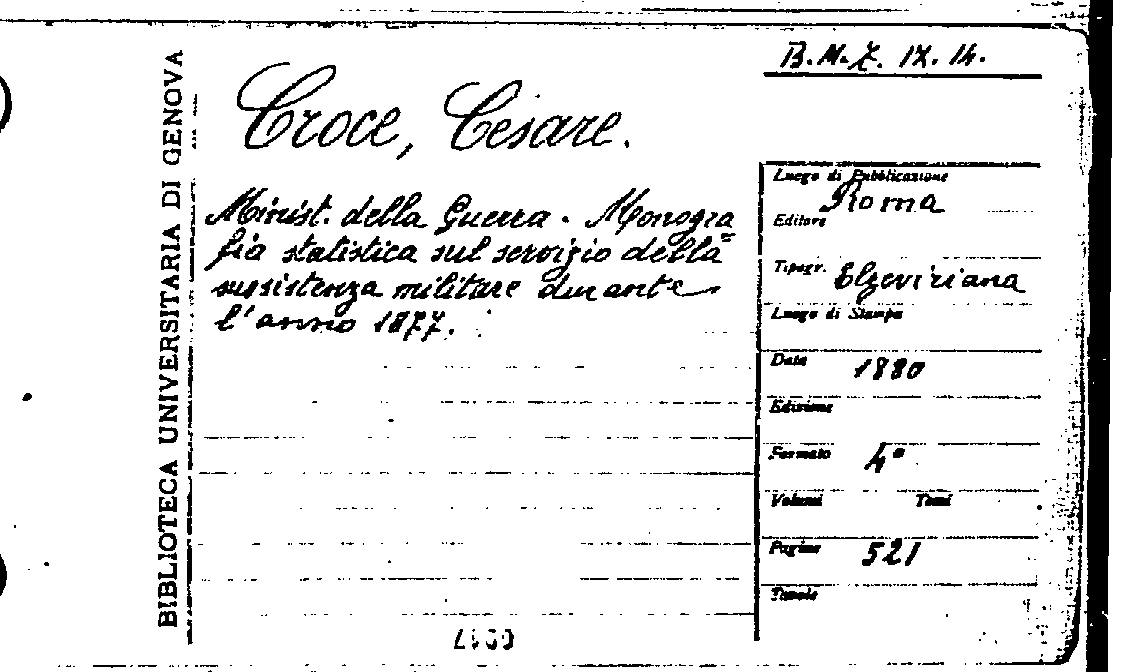 B.M.Z. IX. 14.
BIBLIOTECA UNIVERSITARIA DI GENOVA
Croce, Cesare.
Minist. della Guerra. Monogra
fia statistica sul servizio della=
sussistenza militare durante
l'anno 1877.
Luogo di Pubblicazione
Roma
Editore
Tipogr. Elzeviriana
Luogo di Stampa
Data 1880
Edizione
Formato 4°
Volumi Tomi
Pagine 521
Tavole